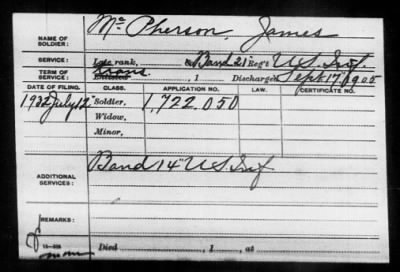 NAME OF SOLDIER: McPherson, James
SERVICE: Late rank, Band 21 Reg't U.S. Inf.
TERM OF SERVICE: Enlisted Trans. , 1 Discharged Sept 17, 1905
DATE OF FILING. CLASS. APPLICATION NO. LAW. CERTIFICATE NO.
1932 July 12" Soldier, 1,722,050
Widow,
Minor,
ADDITIONAL SERVICES: Band 14" U.S. Inf
REMARKS:
Died , 1 , at